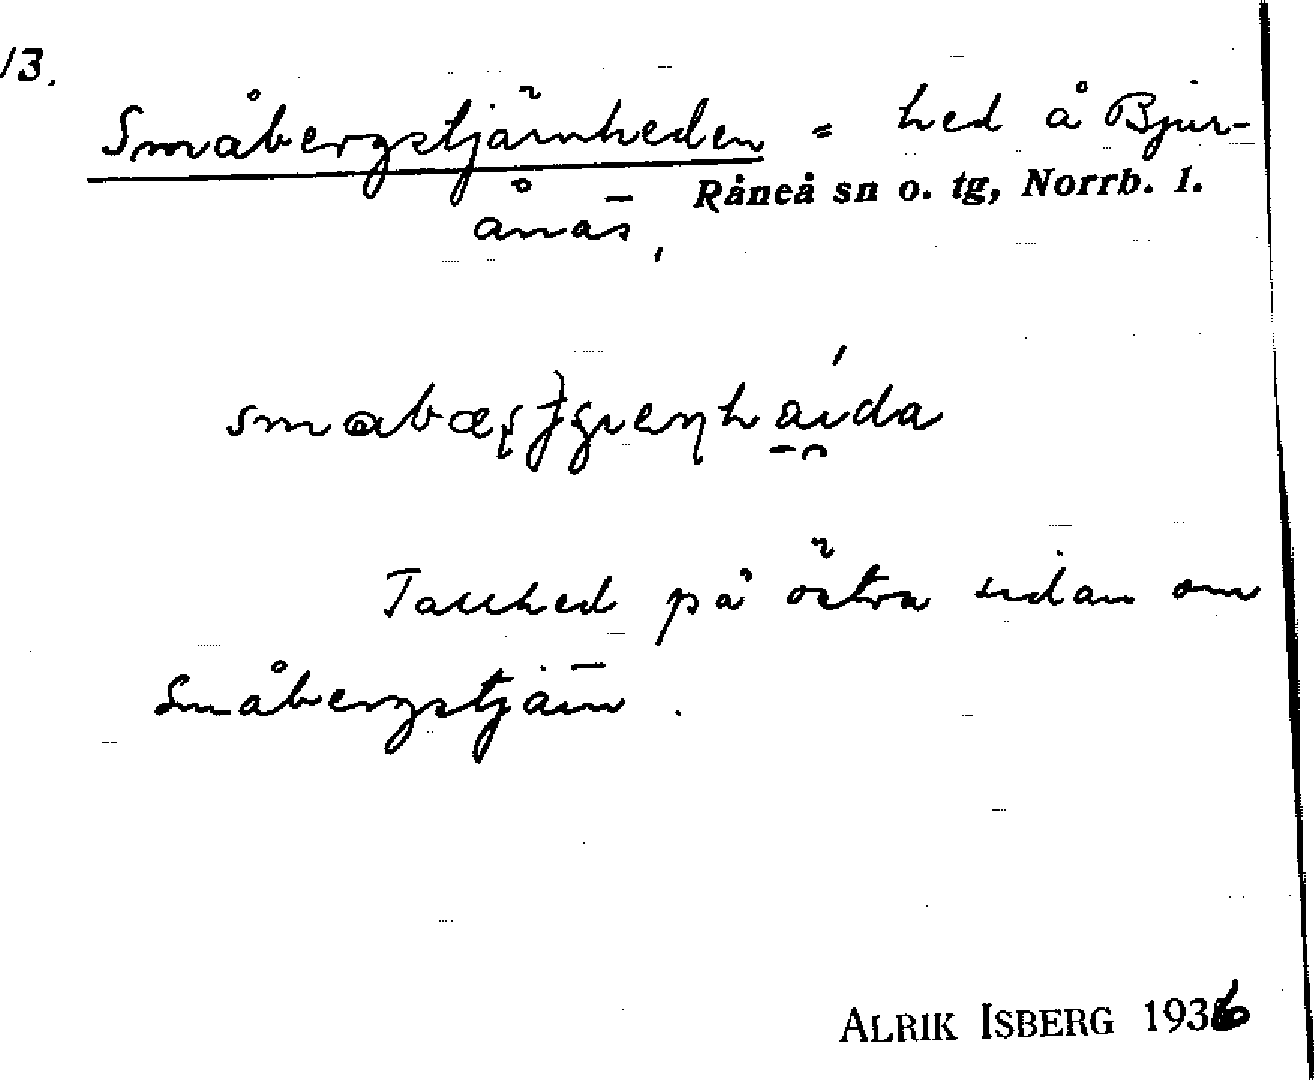 13.
Småbergstjärnheden = hed å Bjur-
Råneå sn o. tg, Norrb. l.
ånäs,
Tallhed på östra sidan om
Småbergstjärn.
ALRIK ISBERG 1936